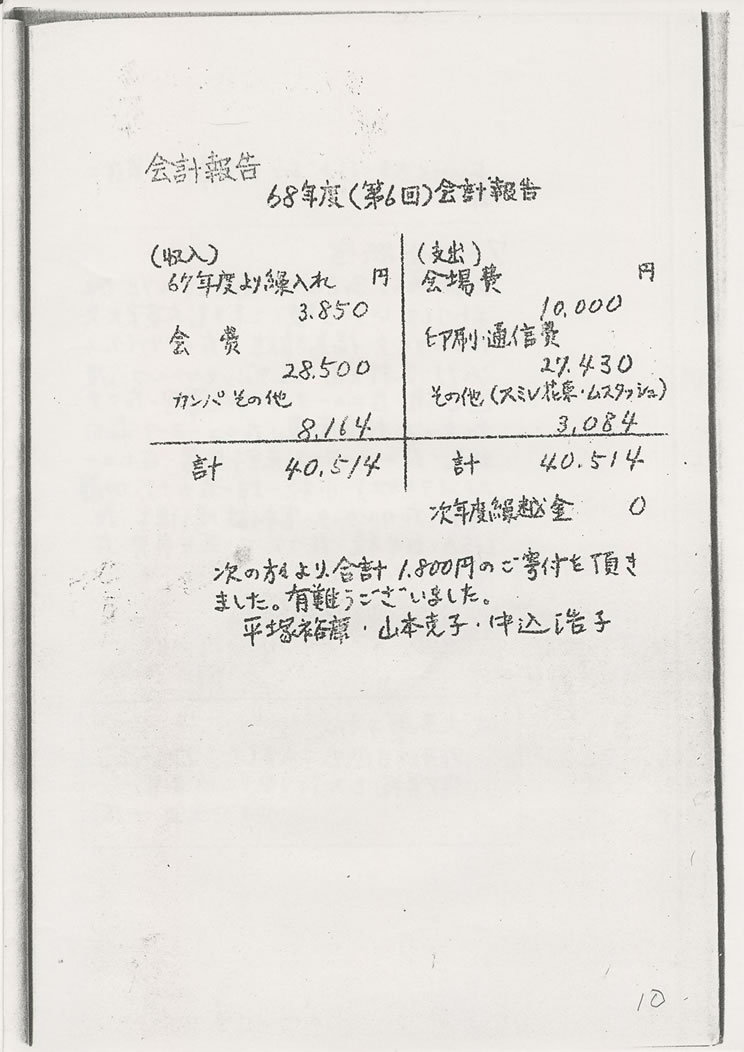 会計報告
68年度(第6回)会計報告
(収入)
67年度より繰入れ 円
3.850
会 費
28.500
カンパその他
8.164
計 40.514
(支出)
会場費 円
10.000
印刷・通信費
27.430
その他(スミレ花束・ムスタッシュ)
3.084
計 40.514
次年度繰越金 0
次の方々より、合計1.800円のご寄付を頂き
ました。有難うございました。
平塚 ・山本克子・中込浩子
10